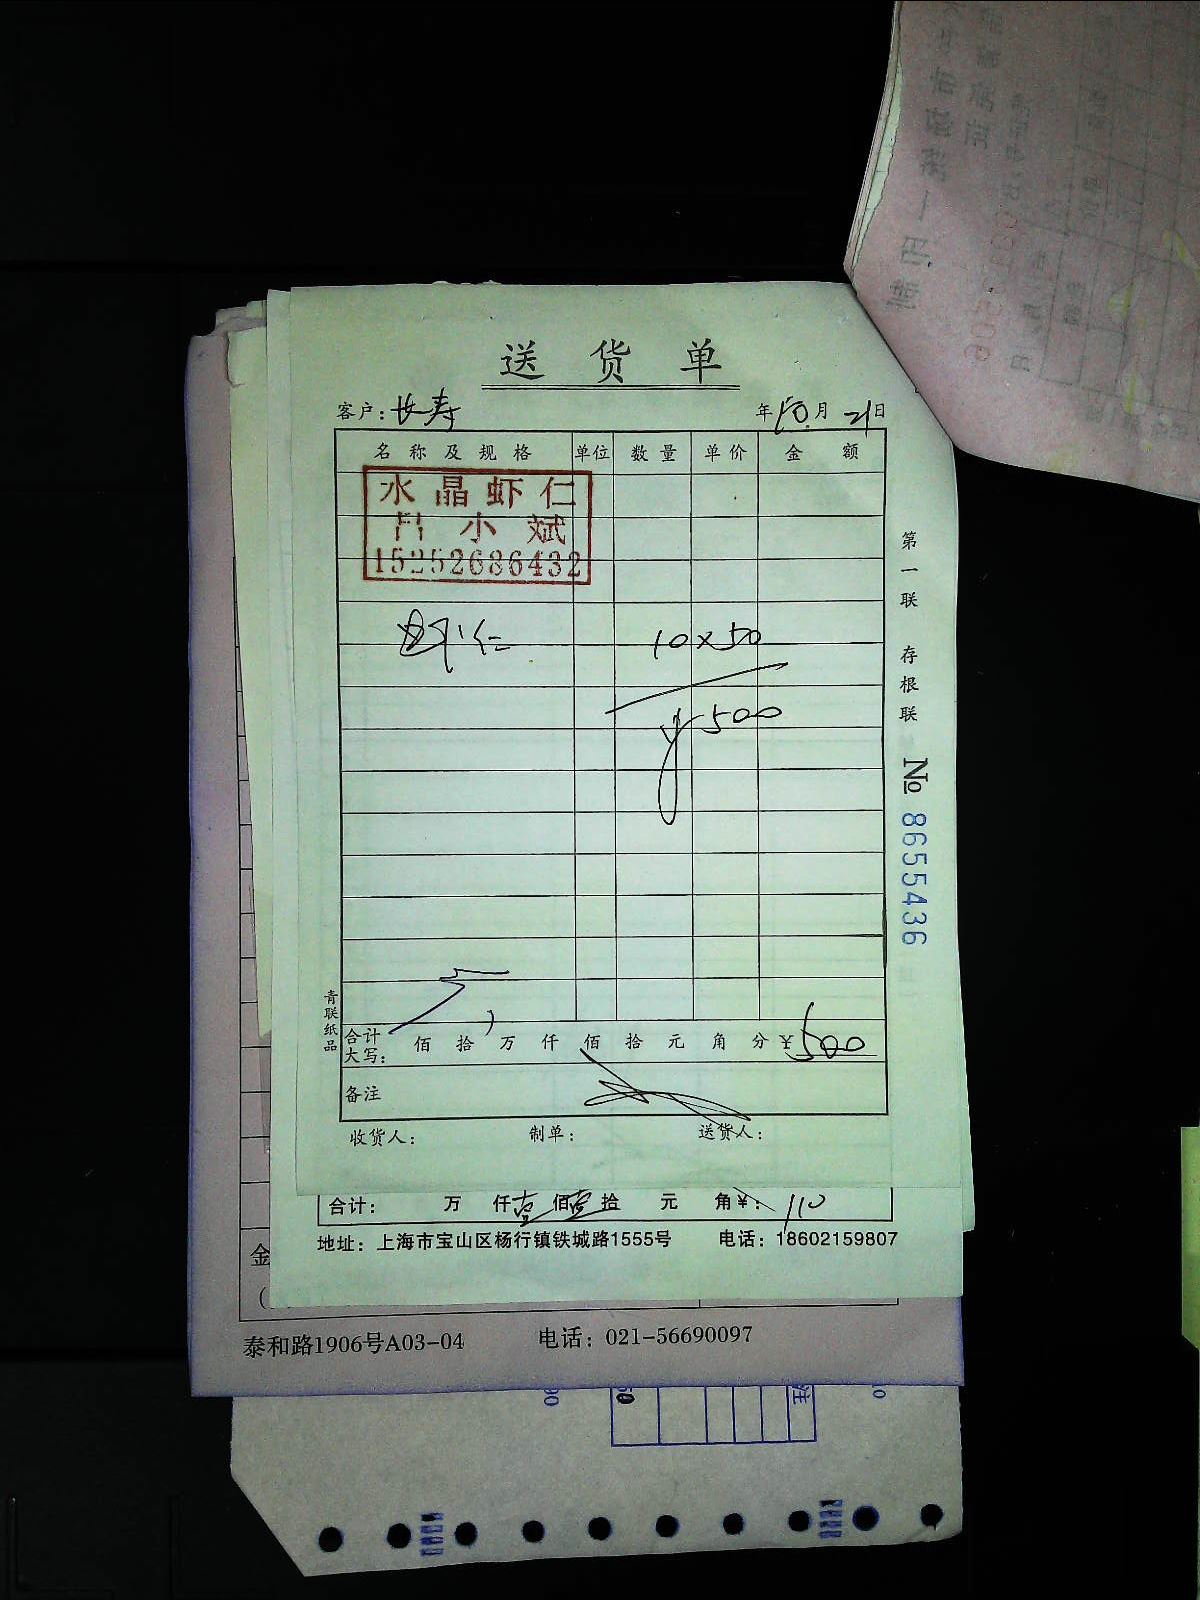 送货单
客户：长寿 年10月21日
名称及规格 单位 数量 单价 金额
水晶虾仁
吕小斌
15252686432
虾仁 10×50
¥500
第一联 存根联 № 8655436
青联纸品
合计大写： 佰 拾 万 仟 佰 拾 元 角 分 ¥500
备注
收货人： 制单： 送货人：
合计： 万 仟壹佰壹拾 元 角¥：110
地址：上海市宝山区杨行镇铁城路1555号 电话：18602159807
金
泰和路1906号A03-04 电话：021-56690097
注